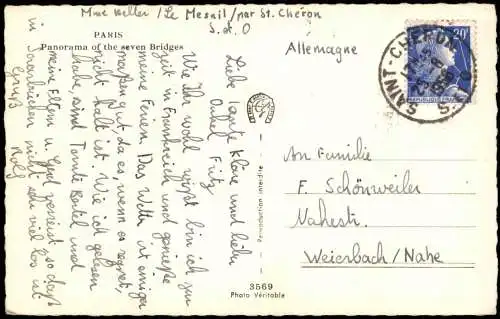 Mme Keller / Le Mesnil / par St. Chéron
S. et. O
PARIS
Panorama of the seven Bridges
Allemagne
20F
SAINT-CHÉRON
S. & O.
REPUBLIQUE FRANÇAISE
Liebe Tante Kläre und lieber
Onkel Fritz
Wie Ihr wohl wißt bin ich zur
Zeit in Frankreich und genieße
meine Ferien. Das Wetter ist einiger-
maßen gut, da es, wenn es regnet,
nicht kalt ist. Wie ich gelesen
habe, sind Tante Bertel und
meine Eltern u. Gerd verreist, so daß
in Saarbrücken nicht sehr viel los ist
Gruß
Rolf
Reproduction interdite
3569
Photo Véritable
An Familie
F. Schönweiler
Nahestr.
Weierbach/Nahe